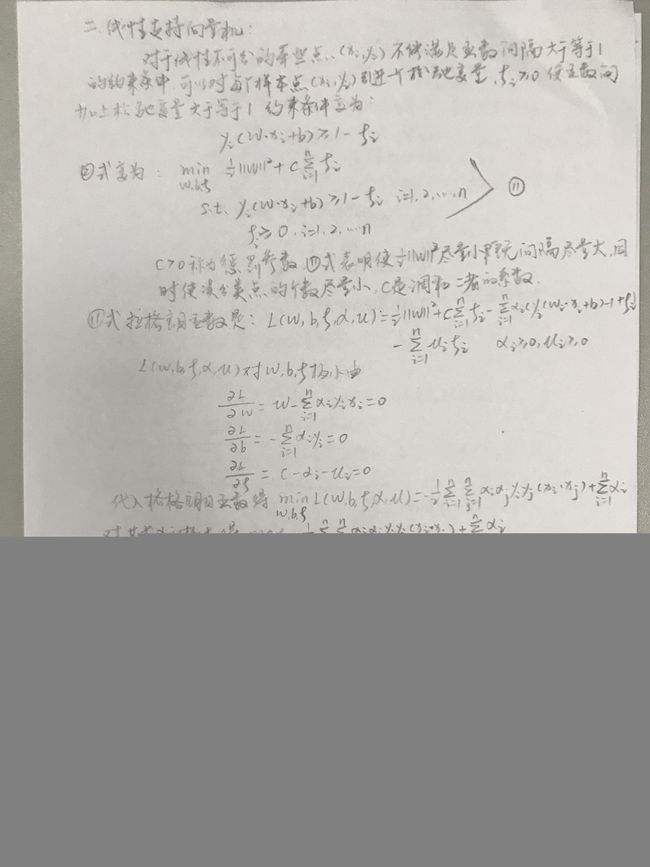 二.线性支持向量机:
对于线性不可分的某些点(xᵢ,yᵢ)不能满足函数间隔大于等于1
的约束条件,可以对每个样本点(xᵢ,yᵢ)引进一个松弛变量ξᵢ≥0使函数间
加上松弛变量大于等于1 约束条件变为:
yᵢ(w·xᵢ+b)≥1-ξᵢ
式变为: min_{w,b,ξ} ½||w||²+C∑_{i=1}^{n}ξᵢ
s.t. yᵢ(w·xᵢ+b)≥1-ξᵢ i=1,2,...,n ⑪
ξᵢ≥0,i=1,2,...,n
C>0称为惩罚参数. ⑪式表明使½||w||²尽量小 间隔尽量大,同
时使误分类点的个数尽量小,C是调和二者的系数.
⑪式拉格朗日函数是: L(w,b,ξ,α,u)=½||w||²+C∑_{i=1}^{n}ξᵢ-∑_{i=1}^{n}αᵢ(yᵢ(wᵢ·xᵢ+b)-1+ξᵢ)
-∑_{i=1}^{n}uᵢξᵢ αᵢ≥0,uᵢ≥0
L(w,b,ξ,α,u)对w,b,ξ极小由
∂L/∂w=w-∑_{i=1}^{n}αᵢyᵢxᵢ=0
∂L/∂b=-∑_{i=1}^{n}αᵢyᵢ=0
∂L/∂ξ=C-αᵢ-uᵢ=0
代入格格朗日函数得 min_{w,b,ξ} L(w,b,ξ,α,u)=-½∑_{i=1}^{n}∑_{j=1}^{n}αᵢαⱼyᵢyⱼ(xᵢ·xⱼ)+∑_{i=1}^{n}αᵢ